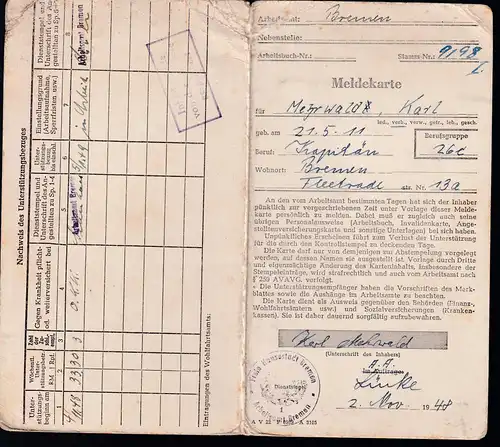 Arbeitsamt: Bremen
Nebenstelle:
Arbeitsbuch-Nr.: Stamm-Nr.: 9198
Meldekarte
für Mehrwald, Karl
led., verh., verw., getr., leb., gesch.
geb. am 21.5.11
Berufsgruppe
Beruf: Kapitän 26c
Wohnort: Bremen
Fleetrade Nr. 13a
An den vom Arbeitsamt bestimmten Tagen hat sich der Inhaber
pünktlich zur vorgeschriebenen Zeit unter Vorlage dieser Melde-
karte persönlich zu melden. Dabei muß er zugleich auch seine
übrigen Personalausweise (Arbeitsbuch, Invalidenkarte, Ange-
stelltenversicherungskarte und sonstige Unterlagen) vorlegen.
Unpünktliches Erscheinen führt zum Verlust der Unterstützung
für die durch den Kontrollstempel zu deckenden Tage.
Die Karte darf nur von demjenigen zur Abstempelung vorgelegt
werden, auf dessen Namen sie ausgestellt ist. Vorlage durch Dritte
und eigenmächtige Änderung des Karteninhalts, insbesondere der
Stempeleinträge, wird strafrechtlich und auch vom Arbeitsamt nach
§ 259 AVAVG. verfolgt.
Die Unterstützungsempfänger haben die Vorschriften des Merk-
blattes sowie die Aushänge im Arbeitsamte zu beachten.
Die Karte dient als Ausweis gegenüber den Behörden (Finanz-,
Wohlfahrtsämtern usw.) und Sozialversicherungen (Kranken-
kassen). Sie ist daher dauernd sorgfältig aufzubewahren.
Karl Mehrwald
(Unterschrift des Inhabers)
Freie Hansestadt Bremen
Arbeitsamt Bremen
Dienstsiegel
I. A.
Im Auftrage:
Linke
2. Nov. 1948
Nachweis des Unterstützungsbezuges
Unter-
stützungs-
beginn am
Wöchentl.
Unter-
stützungssatz
RM. Rpf.
Gegen Krankheit pflicht-
od. weiterversichert bei
Dienststempel und
Unterschrift des An-
gestellten zu Sp. 1-4
Unter-
stützungs-
bezug
einschl.
Einstellungsgrund
(Arbeitsaufnahme,
Sperrfristen usw.)
Dienststempel und
Unterschrift des An-
gestellten zu Sp. 6
1 2 3 4 5 6 7 8
33,30 3
in Arbeit
Arbeitsamt Bremen
Arbeitsamt Bremen
Eintragungen des Wohlfahrtsamts: